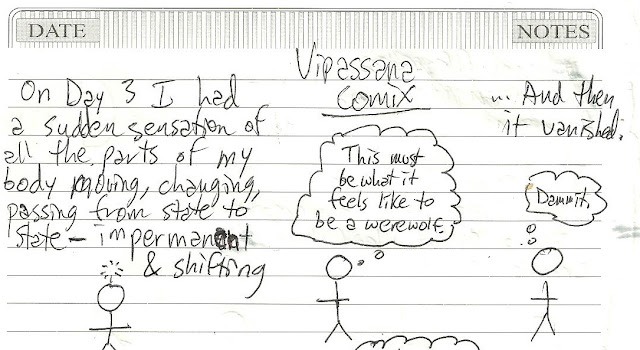 DATE
NOTES
Vipassana
Comix
On Day 3 I had
a sudden sensation of
all the parts of my
body moving, changing,
passing from state to
state - impermanent
& shifting
This must
be what it
feels like to
be a werewolf.
... And then
it vanished.
Dammit.